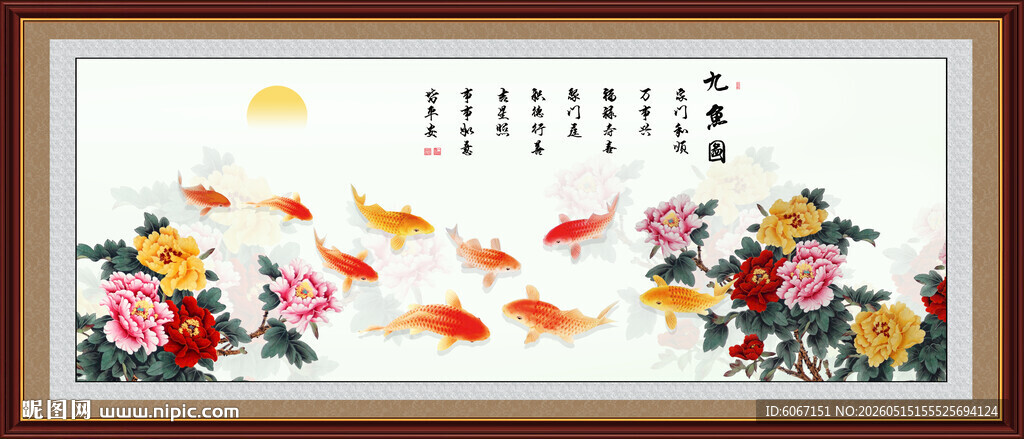 九魚圖
家门和顺
万事兴
福禄寿喜
聚门庭
积德行善
吉星照
事事如意
皆平安
昵图网 www.nipic.com
ID:6067151 NO:20260515155525694124